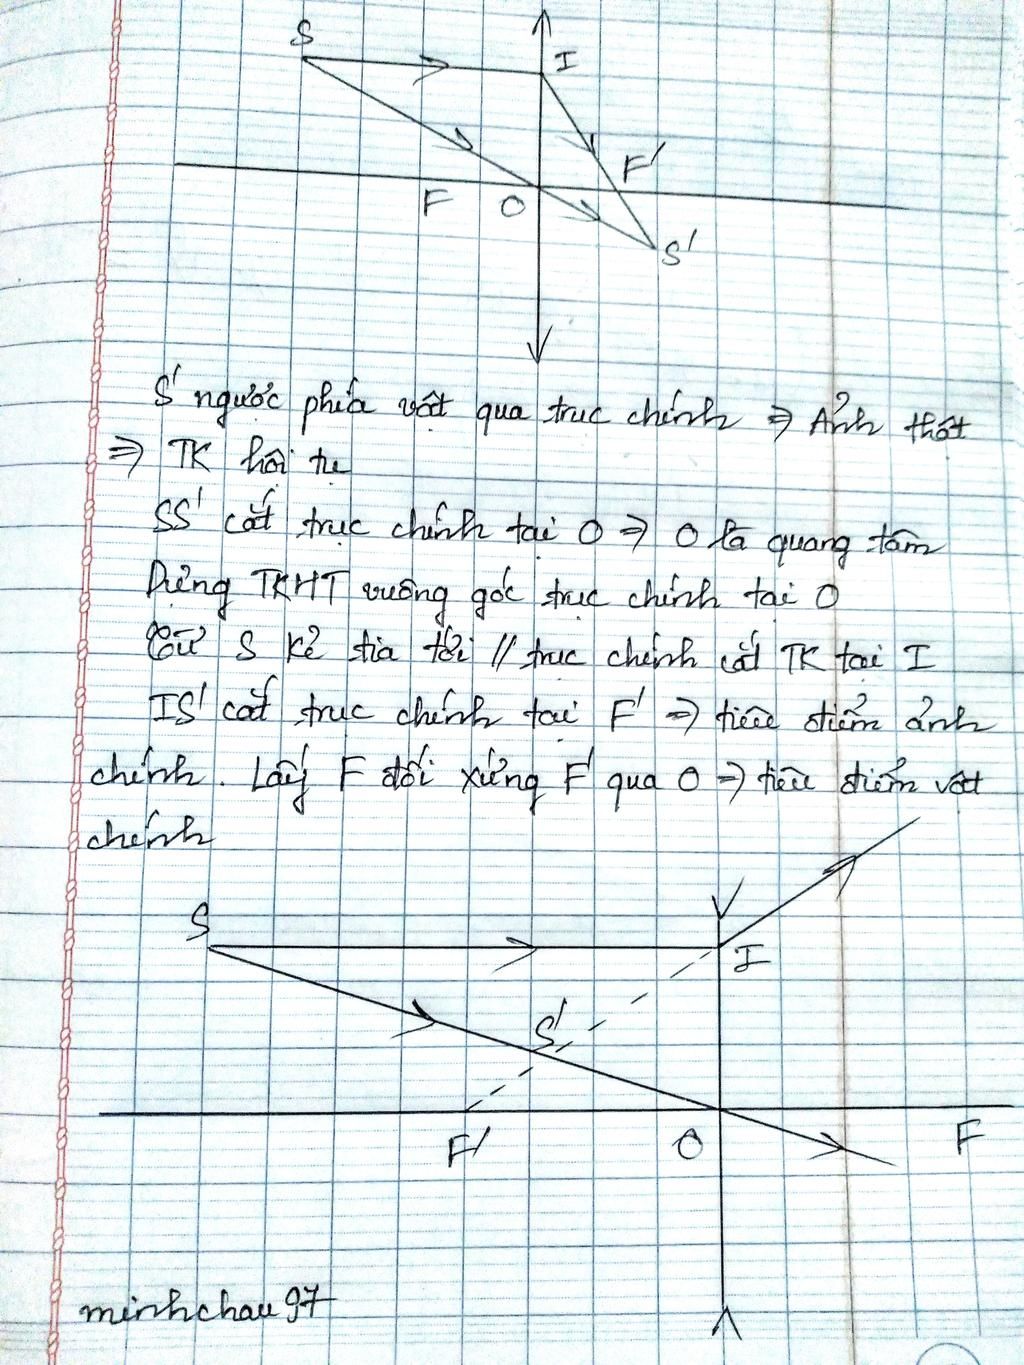 S
I
F'
F
O
S'
S' ngược phía vật qua trục chính ⇒ Ảnh thật
⇒ TK hội tụ
SS' cắt trục chính tại O ⇒ O là quang tâm
Dựng TKHT vuông góc trục chính tại O
Từ S kẻ tia tới // trục chính cắt TK tại I
IS' cắt trục chính tại F' ⇒ tiêu điểm ảnh
chính. Lấy F đối xứng F' qua O ⇒ tiêu điểm vật
chính
S
I
S'
F'
O
F
minhchau97